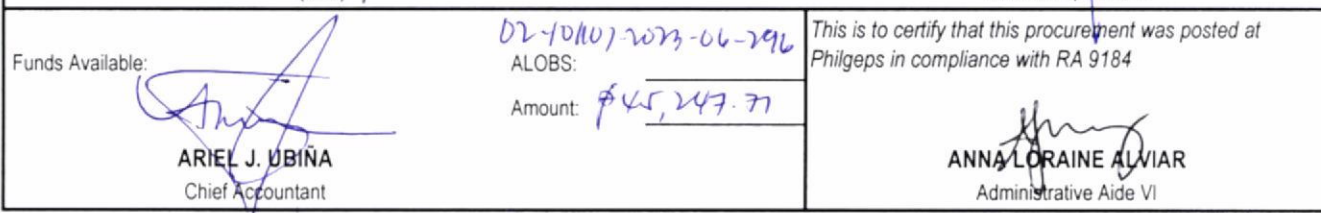 Funds Available:
ARIEL J. UBIÑA
Chief Accountant
02-101101-2023-06-296
ALOBS:
Amount: ₱45,247.71
This is to certify that this procurement was posted at
Philgeps in compliance with RA 9184
ANNA LORAINE ALVIAR
Administrative Aide VI